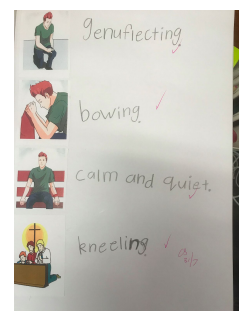 genuflecting.
bowing.
calm and quiet.
kneeling.